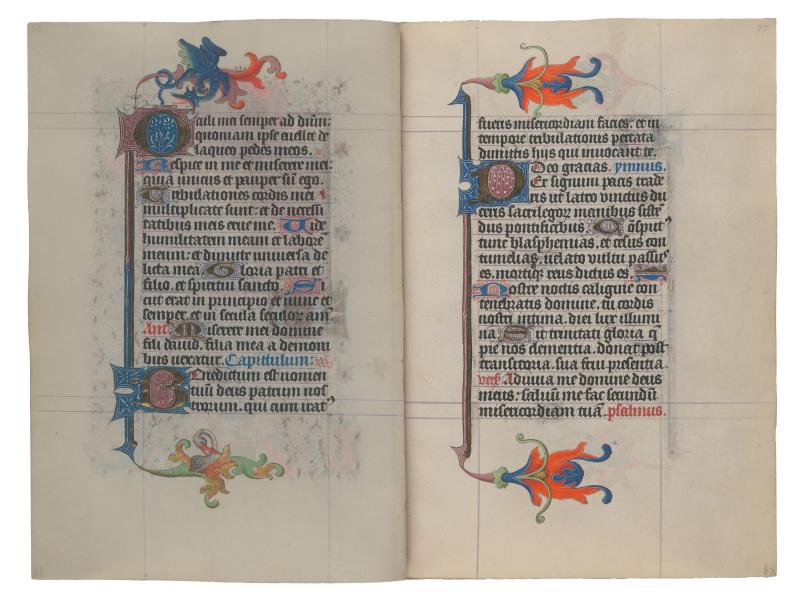 Oculi mei semper ad dnm:
quoniam ipse euellet de
laqueo pedes meos.
Respice in me et miserere mei:
quia unicus et pauper sū ego.
Tribulationes cordis mei
multiplicate sunt: et de necessi
tatibus meis erue me. Uide
humilitatem meam et labore
meum: et dimitte uniuersa de
licta mea. Gloria patri et
filio. et spiritui sancto. Si
cut erat in principio et nunc et
semper. et in secula seculor am̄.
Ant. Miserere mei domine
fili dauid. filia mea a demoni
bus uexatur. Capitulum:
Benedictum est nomen
tuū deus patrum nos
trorum. qui cum irat
77
fueris misericordiam facies. et in
tempore tribulationis peccata
dimittis hijs qui inuocant te.
Deo gracias. ymnus.
Et signum pacis trade
ris ut latro uinctus du
ceris sacrilegor manibus siste
dus pontificibus Cōsput
tunc blasphemias. et cesus con
tumelias. uelato uultu passus
es. mortisq reus dictus es.
Nostre noctis caligine con
tenebratis domine. tu cordis
nostri intima. diei lux illumi
na. Sit trinitati gloria q
pie nos clementia. donat post
transitoria. sua frui presentia.
vers. Adiuua me domine deus
meus: saluū me fac secundū
misericordiam tuā. psalmus.